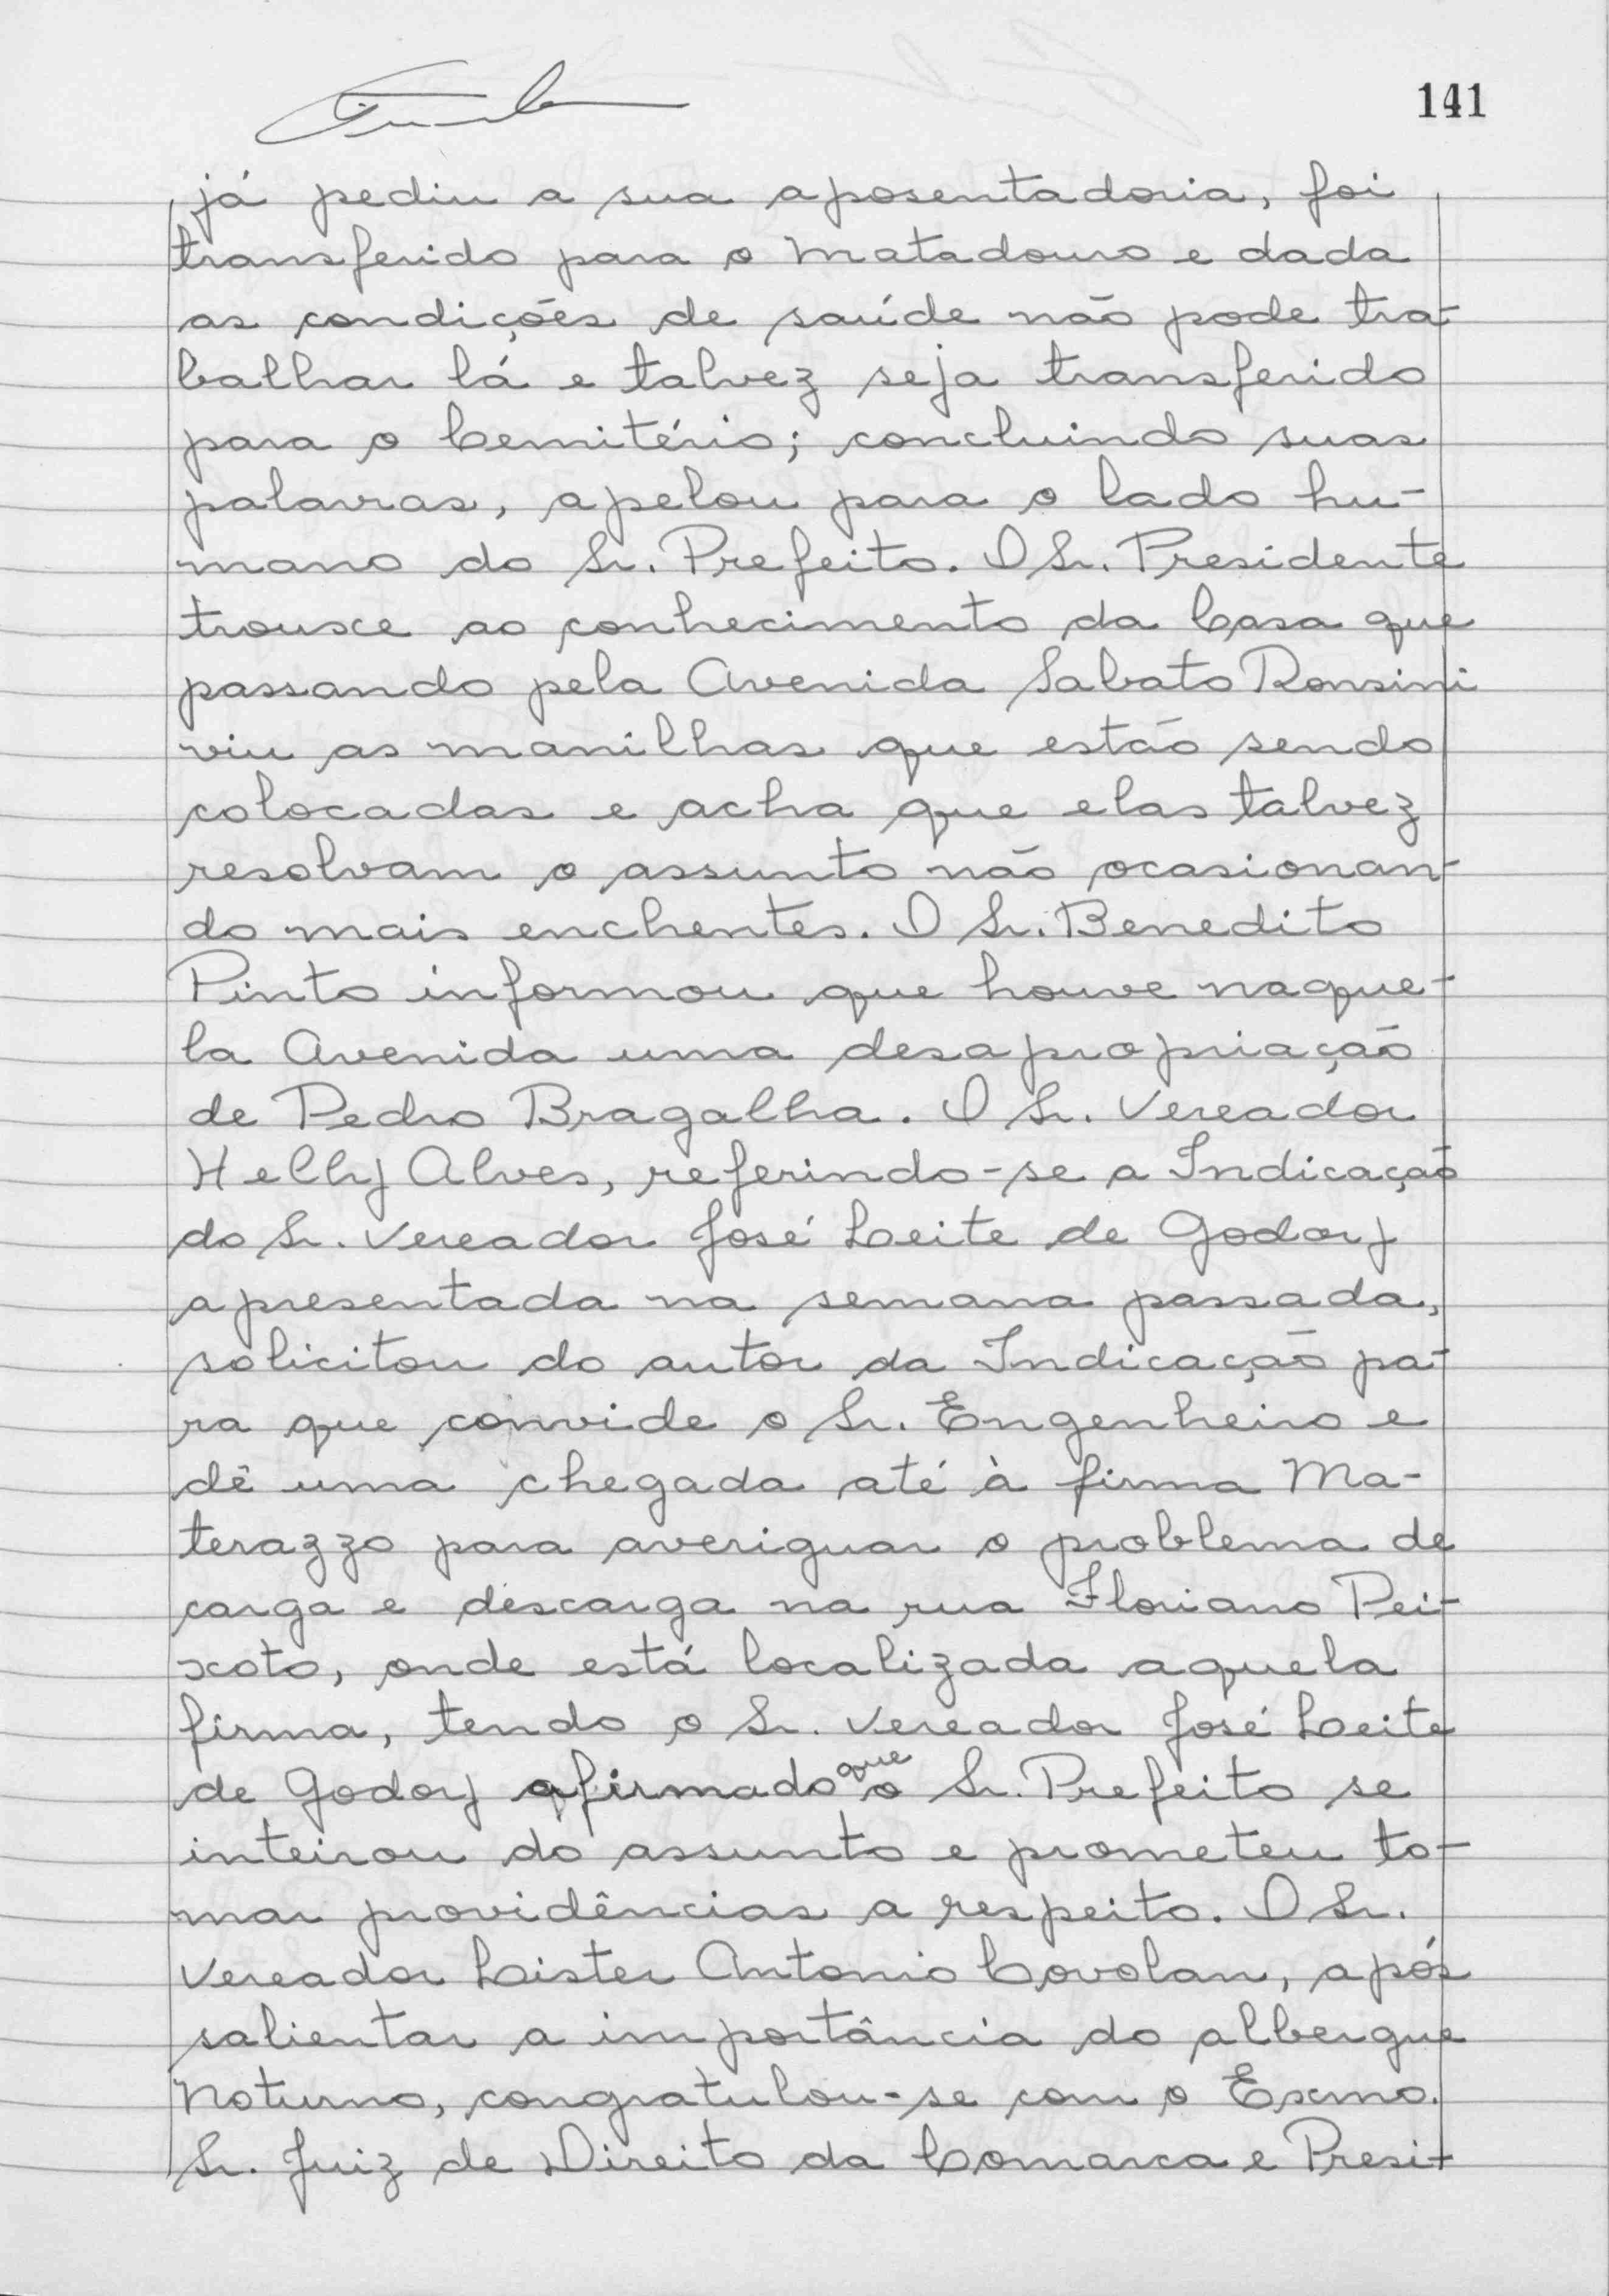 141
já pediu a sua aposentadoria, foi
transferido para o Matadouro e dada
as condições de saúde não pode tra-
balhar lá e talvez seja transferido
para o Cemitério; concluindo suas
palavras, apelou para o lado hu-
mano do Sr. Prefeito. O Sr. Presidente
trouxe ao conhecimento da Casa que
passando pela Avenida Sabato Ronsini
viu as manilhas que estão sendo
colocadas e acha que elas talvez
resolvam o assunto não ocasionan-
do mais enchentes. O Sr. Benedito
Pinto informou que houve naque-
la Avenida uma desapropriação
de Pedro Bragalha. O Sr. Vereador
Helly Alves, referindo-se a Indicação
do Sr. Vereador José Leite de Godoy
apresentada na semana passada,
solicitou do autor da Indicação pa-
ra que convide o Sr. Engenheiro e
dê uma chegada até à firma Ma-
terazzo para averiguar o problema de
carga e descarga na rua Floriano Pei-
xoto, onde está localizada aquela
firma, tendo o Sr. Vereador José Leite
de Godoy afirmado que o Sr. Prefeito se
inteirou do assunto e prometeu to-
mar providências a respeito. O Sr.
Vereador Lister Antonio Covolan, após
salientar a importância do albergue
Noturno, congratulou-se com o Exmo.
Sr. Juiz de Direito da Comarca e Presi-